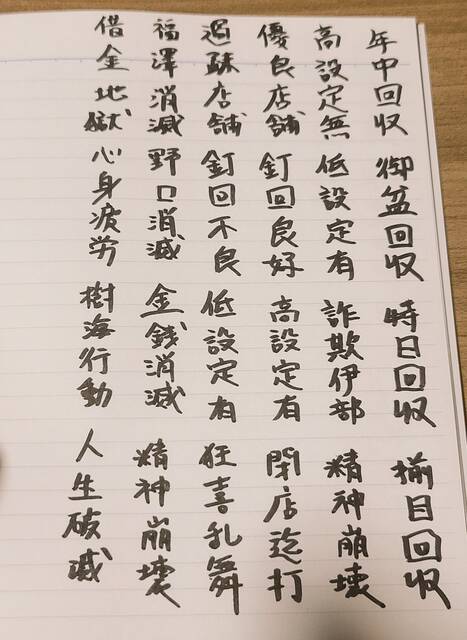 年中回収 御盆回収 特日回収 揃目回収
高設定無 低設定有 詐欺伊部 精神崩壊
優良店舗 釘回良好 高設定有 閉店迄打
過疎店舗 釘回不良 低設定有 狂喜乱舞
福澤消滅 野口消滅 金銭消滅 精神崩壊
借金地獄 心身疲労 樹海行動 人生破滅